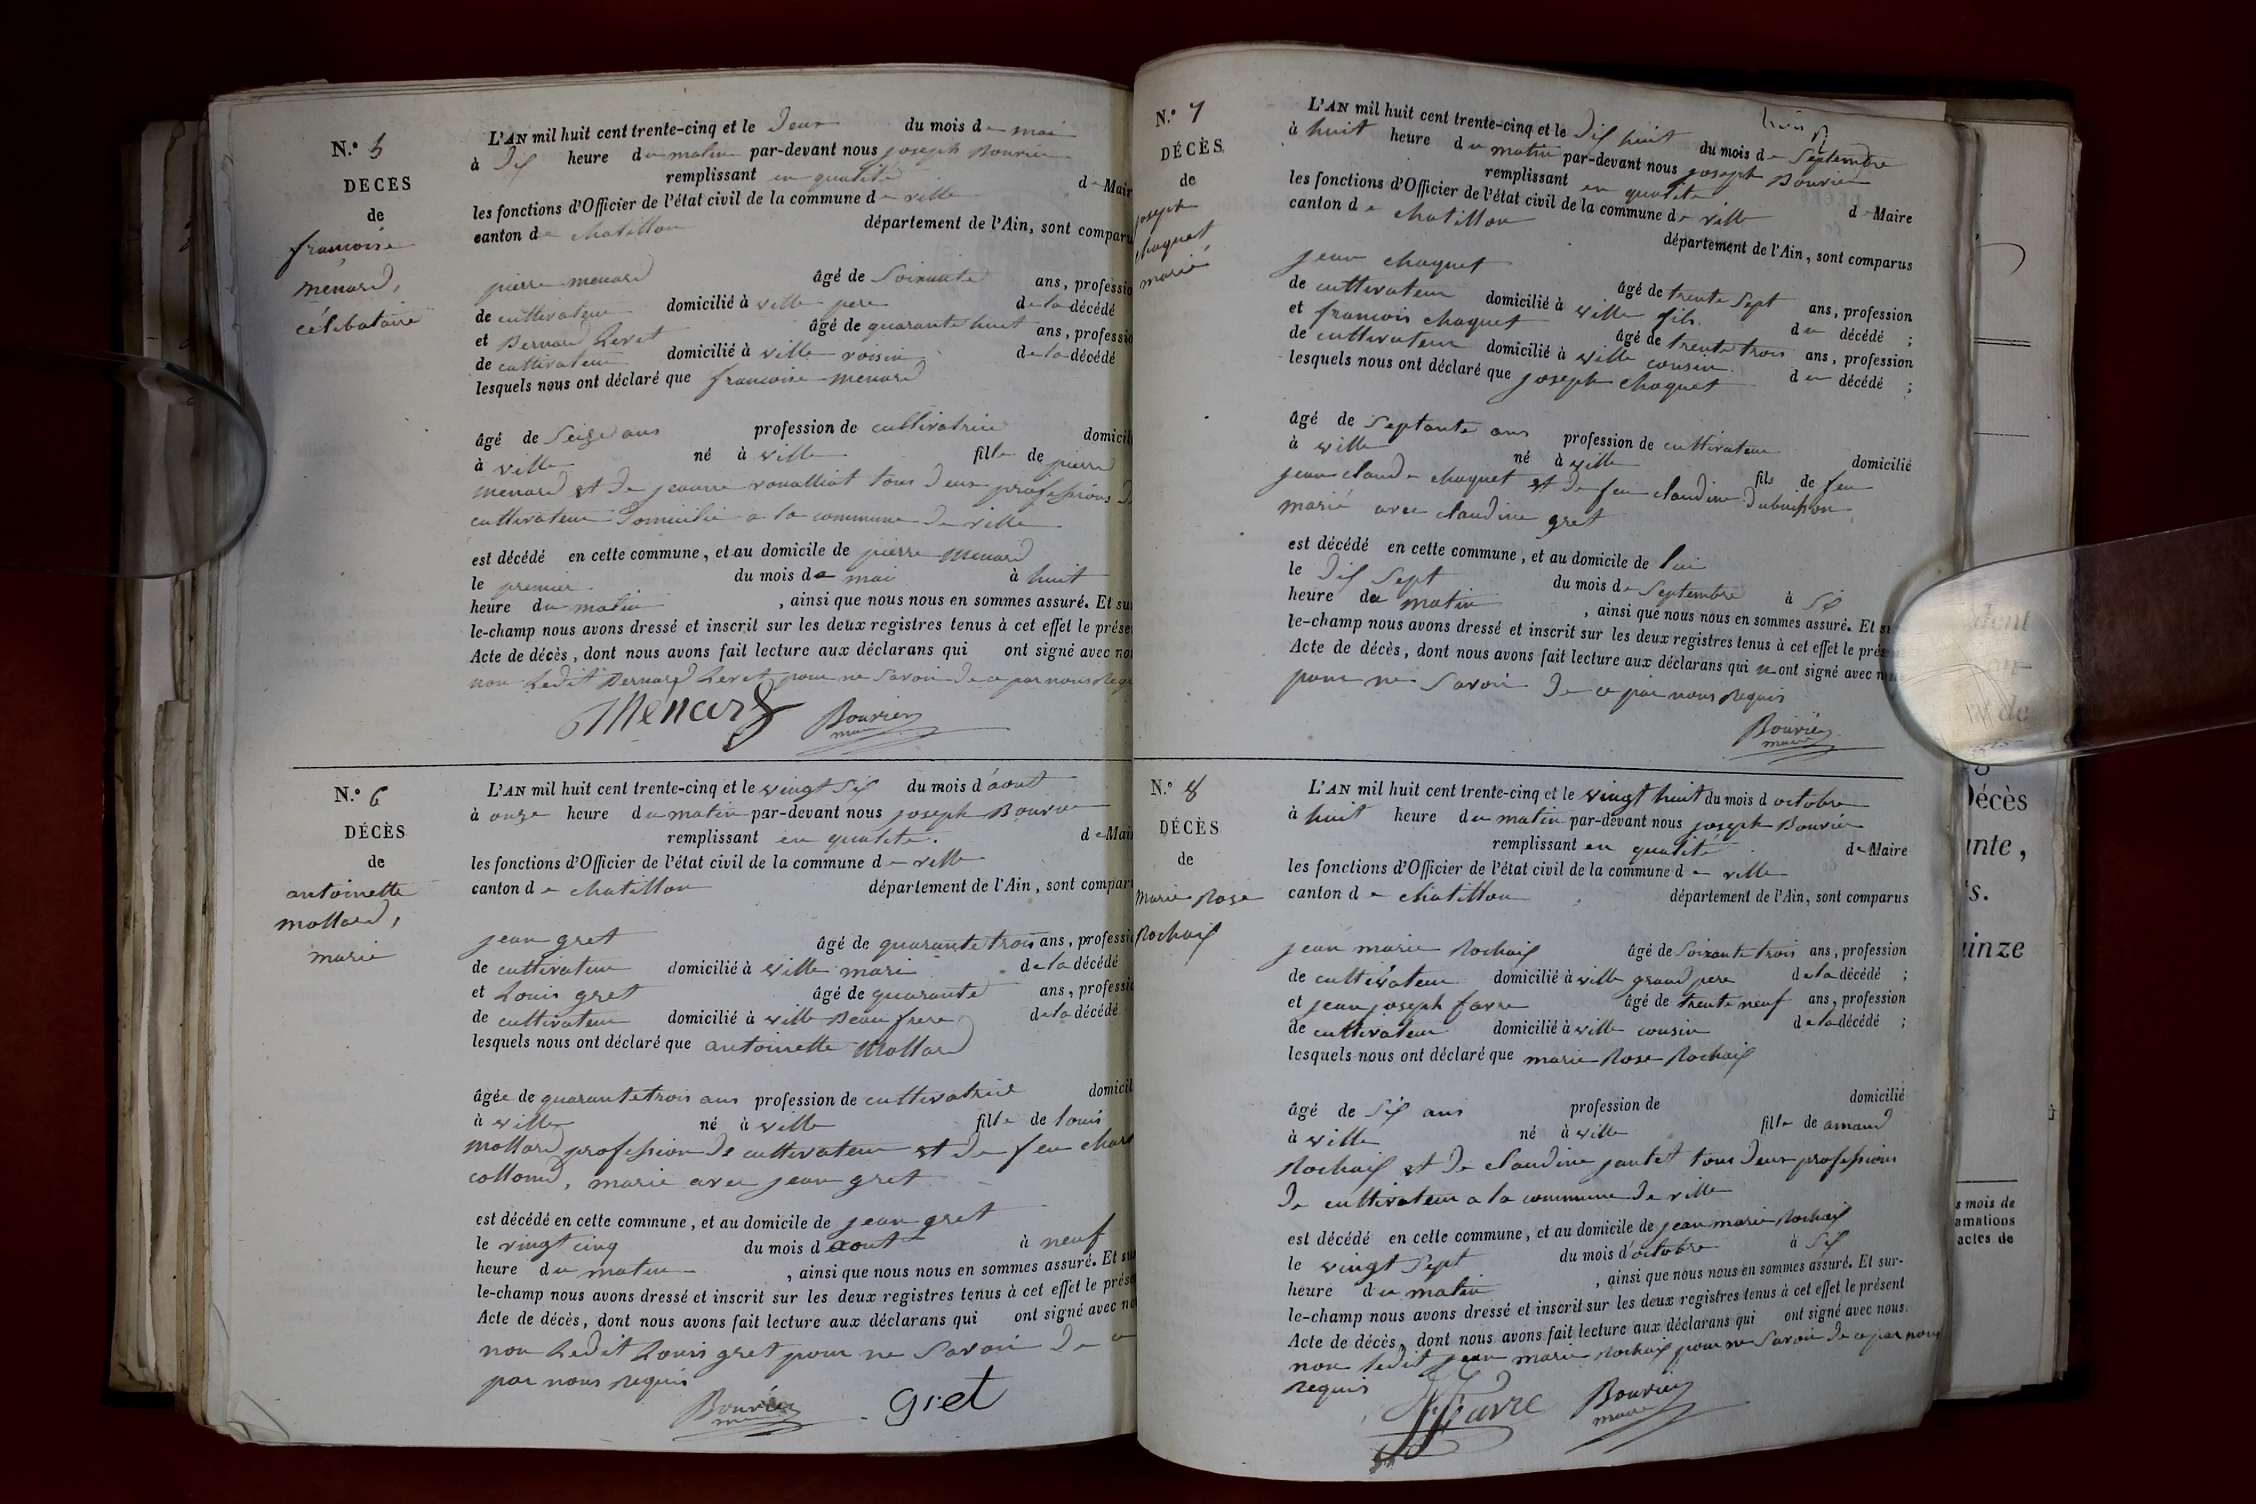 N.° 5
DECES
de
francoise
menard,
célibataire
L'AN mil huit cent trente-cinq et le deux du mois de mai
à dix heure du matin par-devant nous joseph Bouvier
remplissant en qualité de Mair
les fonctions d'Officier de l'état civil de la commune de ville
canton de chatillon département de l'Ain, sont comparu
pierre menard âgé de Soixante ans, professio
de cultivateur domicilié à ville pere de la décédé
et Bernard Levet âgé de quarante huit ans, professio
de cultivateur domicilié à ville voisin de la décédé
lesquels nous ont déclaré que francoise menard
âgé de Seize ans profession de cultivatrice domicil
à ville né à ville fille de pierre
menard et de jeanne rouailliat tous deux professions de
cultivateur domicilié a la commune de ville
est décédé en cette commune, et au domicile de pierre menard
le premier du mois de mai à huit
heure du matin , ainsi que nous nous en sommes assuré. Et su
le-champ nous avons dressé et inscrit sur les deux registres tenus à cet effet le prése
Acte de décès, dont nous avons fait lecture aux déclarans qui ont signé avec no
non Ledit Bernard Levet pour ne Savoir de ce par nous Requ
Menard Bouvier
maire
N.° 6
DÉCÈS
de
antoinette
mollard,
marie
L'AN mil huit cent trente-cinq et le vingt Six du mois d'aout
à onze heure du matin par-devant nous joseph Bouvier
remplissant en qualité. de Mair
les fonctions d'Officier de l'état civil de la commune de ville
canton de chatillon département de l'Ain, sont compar
jean gret âgé de quarante trois ans, professi
de cultivateur domicilié à ville mari de la décédé
et Louis gret âgé de quarante ans, professi
de cultivateur domicilié à ville Beau frere de la décédé
lesquels nous ont déclaré que antoinette Mollard
âgée de quarante trois ans profession de cultivatrice domicil
à ville né à ville fille de louis
mollard profession de cultivateur et de feu
collomd, marie avec jean gret
est décédé en cette commune, et au domicile de jean gret
le vingt cinq du mois d aout à neuf
heure du matin , ainsi que nous nous en sommes assuré. Et su
le-champ nous avons dressé et inscrit sur les deux registres tenus à cet effet le prése
Acte de décès, dont nous avons fait lecture aux déclarans qui ont signé avec no
non Ledit Louis gret pour ne Savoir de ce
par nous Requis
Bouvier gret
maire
N.° 7
DÉCÈS
de
joseph
chaquet
marié
L'AN mil huit cent trente-cinq et le dix huit du mois de Septembre
à huit heure du matin par-devant nous joseph Bouvier
remplissant en qualité de Maire
les fonctions d'Officier de l'état civil de la commune de ville
canton de chatillon département de l'Ain, sont comparus
jean chaquet âgé de trente Sept ans, profession
de cultivateur domicilié à ville fils. du décédé ;
et francois chaquet âgé de trente trois ans, profession
de cultivateur domicilié à ville cousin du décédé ;
lesquels nous ont déclaré que joseph chaquet
âgé de Septante ans profession de cultivateur domicilié
à ville né à ville fils de feu
jean claude chaquet et de feu claudine Dubuisson
marié avec claudine gret
est décédé en cette commune, et au domicile de lui
le dix Sept du mois de Septembre à Six
heure du matin , ainsi que nous nous en sommes assuré. Et su
le-champ nous avons dressé et inscrit sur les deux registres tenus à cet effet le prés
Acte de décès, dont nous avons fait lecture aux déclarans qui n ont signé avec n
pour ne Savoir de ce par nous Requis
Bouvier
maire
N.° 8
DÉCÈS
de
Marie Rose
Rochaix
L'AN mil huit cent trente-cinq et le vingt huit du mois d octobre
à huit heure du matin par-devant nous joseph Bouvier
remplissant en qualité de Maire
les fonctions d'Officier de l'état civil de la commune de ville
canton de chatillon département de l'Ain, sont comparus
jean marie Rochaix âgé de Soixante trois ans, profession
de cultivateur domicilié à ville grand pere de la décédé ;
et jean joseph favre âgé de trente neuf ans, profession
de cultivateur domicilié à ville cousin de la décédé ;
lesquels nous ont déclaré que marie Rose Rochaix
âgé de Six ans profession de domicilié
à ville né à ville fille de amand
Rochaix et de claudine jantet tous deux professions
de cultivateur a la commune de ville
est décédé en cette commune, et au domicile de jean marie Rochaix
le vingt Sept du mois d'octobre à Six
heure du matin , ainsi que nous nous en sommes assuré. Et sur-
le-champ nous avons dressé et inscrit sur les deux registres tenus à cet effet le présent
Acte de décès, dont nous avons fait lecture aux déclarans qui ont signé avec nous
non ledit jean marie Rochaix pour ne Savoir de ce par nous
Requis
Favre Bouvier
maire
Décès
nte,
s.
inze
s mois de
amations
actes de